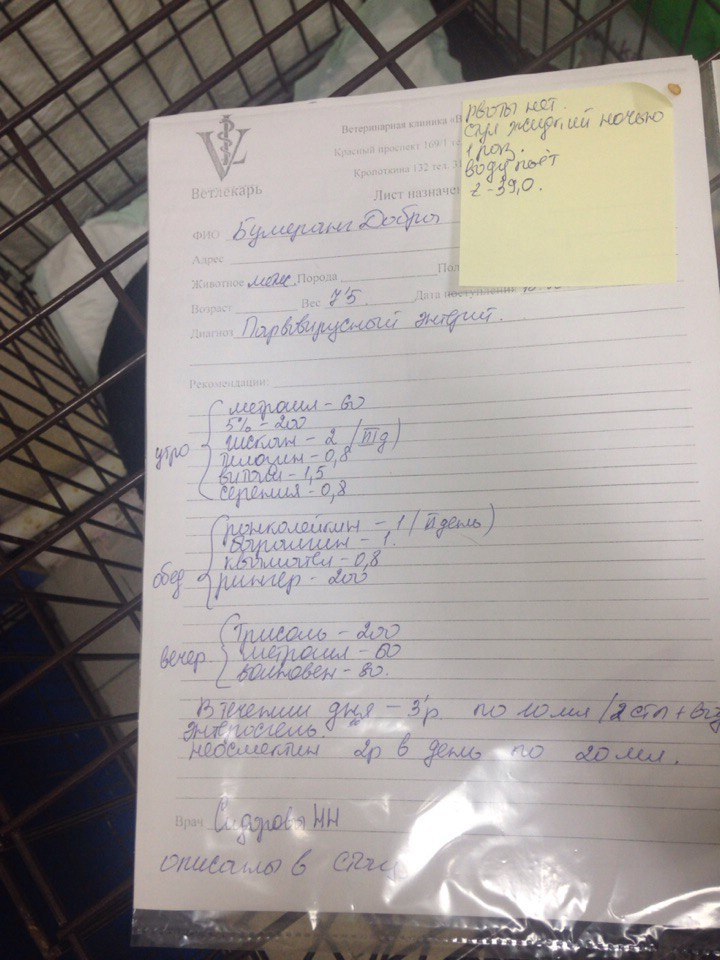 Ветлекарь
Ветеринарная клиника «В
Красный проспект 169/1 те
Кропоткина 132 тел. 31
Лист назначе
рвоты нет.
стул жидкий ночью
1 раз.
воду пьёт
t - 39,0.
ФИО Бумеранг Добра
Адрес
Животное Порода Пол
Возраст Вес 7,5. Дата поступления
Диагноз Парвовирусный энтерит.
Рекомендации:
утро
метрагил - 60
5% - 200
- 2 (III д)
- 0,8
- 1,5
серения - 0,8
обед
ронколейкин - 1 (II день)
баралгин - 1.
квамател - 0,8
рингер - 200
вечер
трисоль - 200
метрагил - 60
- 30.
В течении дня - 3 р по 10 мл (2 стл +
энтеросгель
неосмектин 2р в день по 20 мл.
Врач Сидорова НН
описалы в